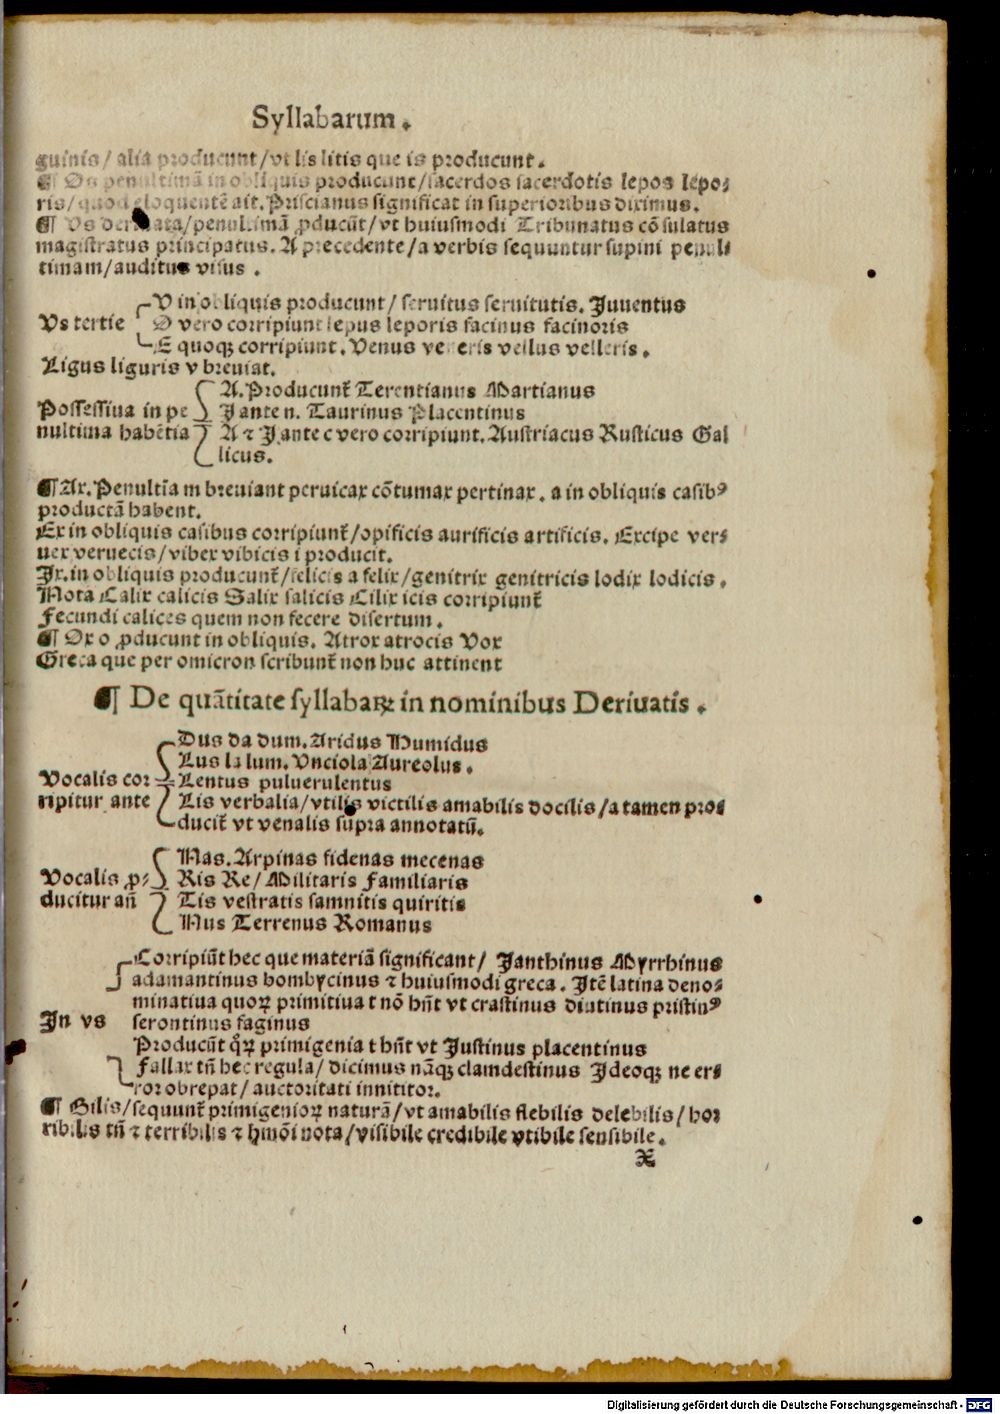 Syllabarum.
guinis/ alia producunt/vt lis litis que is producunt.
¶ Os penultimā in obliquis producunt/sacerdos sacerdotis lepos lepo⸗
ris/quod eloquentē ait. Priscianus significat in superioribus diximus.
¶ Us deriuata/penultimā ꝓducūt/vt huiusmodi Tribunatus cōsulatus
magistratus principatus. A precedente/a verbis sequuntur supini penul⸗
timam/auditus visus.
V in obliquis producunt/ seruitus seruitutis. Iuuentus
Vs tertie O vero corripiunt lepus leporis facinus facinoris
E quoqꝫ corripiunt. Venus veneris vellus velleris.
Ligus liguris v breuiat.
A. Producunt̄ Terentianus Martianus
Possessiua in pe I ante n. Taurinus Placentinus
nultima habētia A ⁊ I ante c vero corripiunt. Austriacus Rusticus Gal
licus.
¶ Ax. Penultīa m breuiant peruicax cōtumax pertinax. a in obliquis casibꝰ
productā habent.
Ex in obliquis casibus corripiunt̄/opificis aurificis artificis. Excipe ver⸗
uex veruecis/vibex vibicis i producit.
Ix. in obliquis producunt̄/felicis a felix/genitrix genitricis lodix lodicis.
Nota Calix calicis Salix salicis Cilix icis corripiunt̄
Fecundi calices quem non fecere disertum.
¶ Ox o ꝓducunt in obliquis. Atrox atrocis Vox
Greca que per omicron scribunt̄ non huc attinent
¶ De quātitate syllabaꝝ in nominibus Deriuatis.
Dus da dum. Aridus Humidus
Lus la lum. Vnciola Aureolus.
Vocalis cor⸗ Lentus puluerulentus
ripitur ante Lis verbalia/vtilis victilis amabilis docilis/a tamen pro⸗
ducit̄ vt venalis supra annotatū.
Nas. Arpinas fidenas mecenas
Vocalis ꝓ⸗ Ris Re/ Militaris Familiaris
ducitur an̄ Tis vestratis samnitis quiritis
Nus Terrenus Romanus
Corripiūt hec que materiā significant/ Ianthinus Myrrhinus
adamantinus bombycinus ⁊ huiusmodi greca. Itē latina deno⸗
minatiua quoꝝ primitiua t nō hn̄t vt crastinus diutinus pristinꝰ
In us serontinus faginus
Producūt qͦꝝ primigenia t hn̄t vt Iustinus placentinus
Fallax tn̄ hec regula/ dicimus nāqꝫ clamdestinus Ideoqꝫ ne er⸗
ror obrepat/ auctoritati innititor.
¶ Bilis/sequunt̄ primigenioꝝ naturā/vt amabilis flebilis delebilis/hor
ribilis tn̄ ⁊ terribilis ⁊ hmōi nota/visibile credibile vtibile sensibile.
X
Digitalisierung gefördert durch die Deutsche Forschungsgemeinschaft - DFG